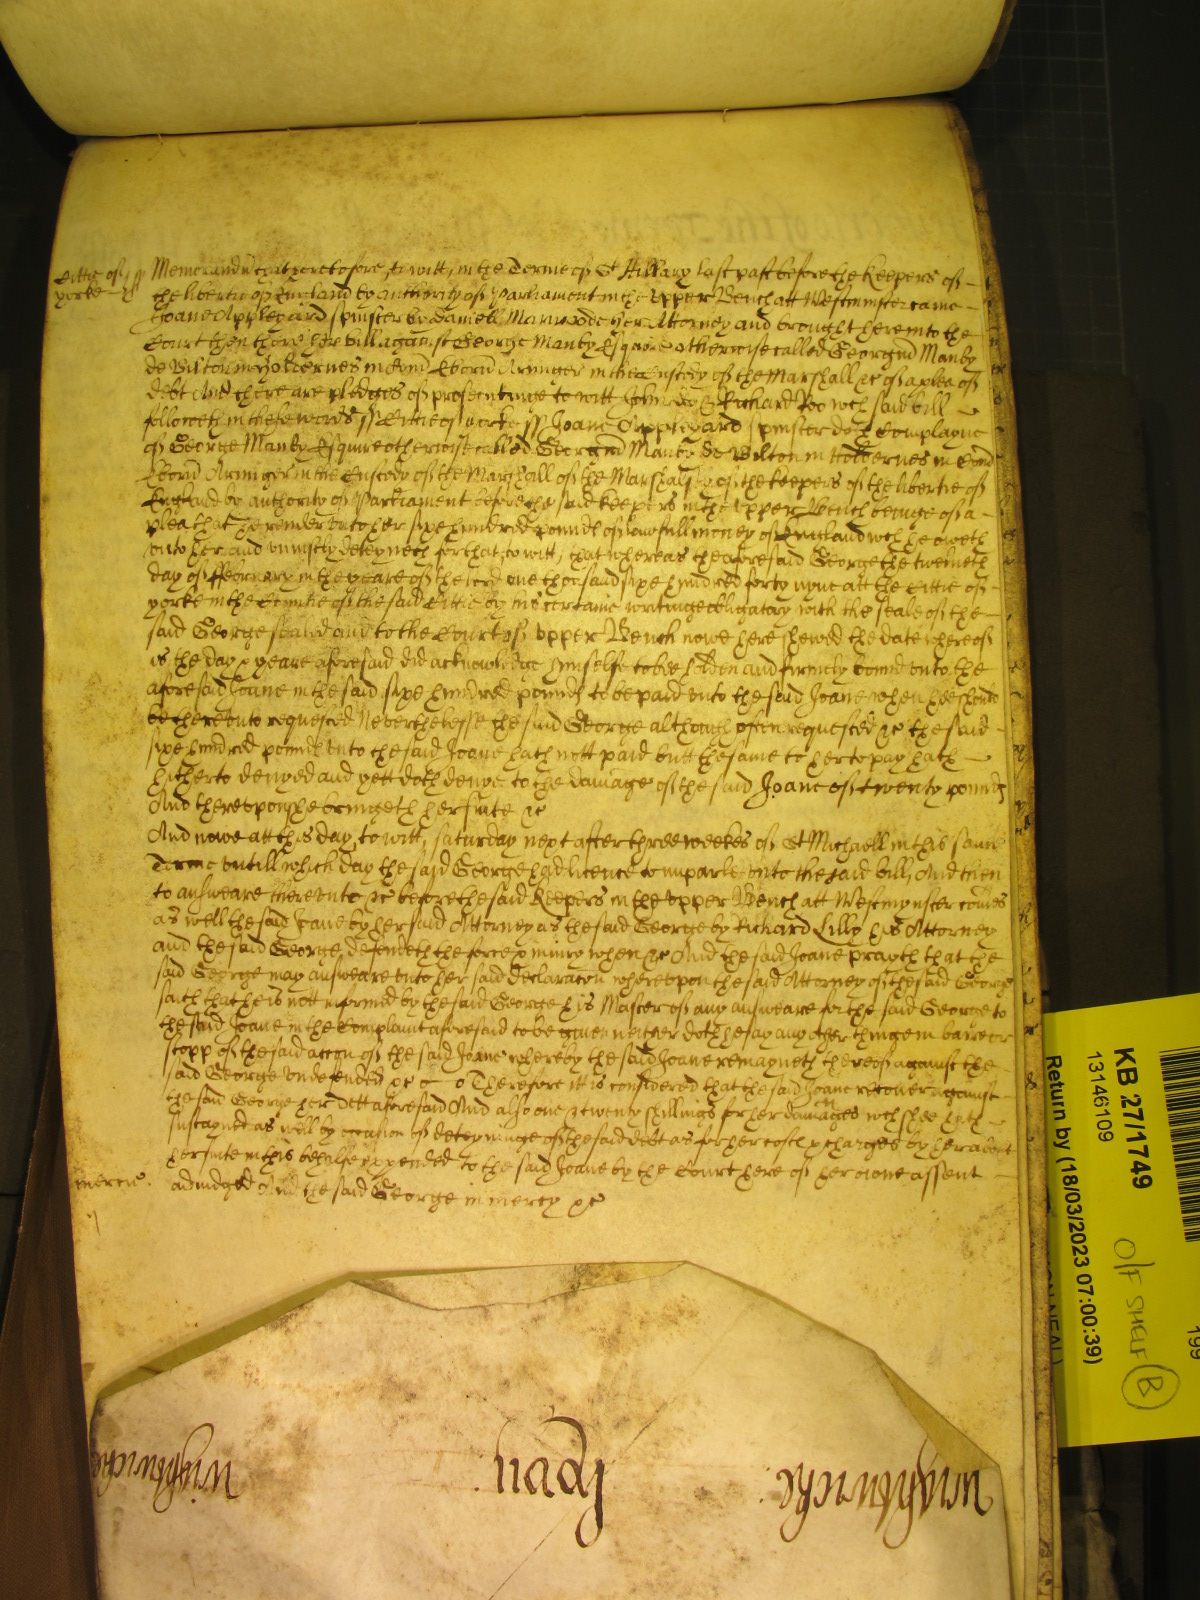 Cittie of
yorke ss
Memorandu that heretofore, to witt, in the Terme of St Hillary last past before the keepers of
the libertie of England by authority of Parliament in the upper Bench att Westminster came
Joane Appleyard spinster by Daniell Manwode her Attorney and brought here into the
Court then there her bill against George Manby Esquire otherwise called Georgiu Manby
de Wilton in holdernes in Com Eborū Armiger in the Custody of the Marshall &c of a plea of
debt And there are pledges of prosecutinge to witt John Doo & Richard Roo wch said bill
followeth in these words ss Cittie of yorke ss Joane Appleyard spinster doth Complayne
of George Manby Esquire otherwise called Georgiū Manby de Wilton in Holdernes in Com
Eborū Armiger in the Custody of the Marshall of the Marshalsey of the keepers of the libertie of
England by authority of Parliament before the said keepers in the upper Bench beinge of a
plea that he render unto her sixe hundred pounds of lawfull money of England wch he oweth
unto her and uniustly deteyneth for that, to witt, that whereas the aforesaid George the twentieth
day of ffebruary in the yeare of the lord one thousand sixe hundred forty nyne att the Cittie of
yorke in the Countie of the said Cittie by his certaine writinge obligatary with the seale of the
said George sealed and to the Court of upper Bench nowe here shewed the date whereof
is the day & yeare aforesaid did acknowledge himselfe to be holden and firmely bound unto the
aforesaid Joane in the said sixe hundred pounds to be paid unto the said Joane when hee should
be thereunto requested Neverthelesse the said George although often requested &c the said
sixe hundred pounds unto the said Joane hath nott paid butt the same to her to pay hath
hitherto denyed and yett doth denye to the damage of the said Joane of twenty pounds
And thereupon she bringeth her suite &c
And nowe att this day, to witt, saturday next after three weekes of St Michaell in this same
Terme untill which day the said George had licence to imparle unto the said bill, And then
to answeare thereunto &c before the said keepers in the upper Bench att Westmynster comes
as well the said Joane by her said Attorney as the said George by Richard Lilly his Attorney
and the said George defendeth the force & iniury when &c And the said Joane prayth that the
said George may answeare unto her said declaraton whereupon the said Attorney of the said George
saith that he is nott informed by the said George his Master of any answeare for the said George to
the said Joane in the Complaint aforesaid to be given neither doth he say any other thinge in barre or
stopp of the said accon of the said Joane whereby the said Joane remayneth thereof against the
said George undefended &c Therefore itt is considered that the said Joane recover against
the said George her dett aforesaid And also one & twenty shillings for her damages wch shee hath
sustayned as well by occasion of deteyninge of the said debt as for her costs & charges by her about
her suite in this behalfe expended to the said Joane by the Court here of her owne assent
mercie. adiudged And the said George in mercy &c
wightwicke
hady
wightwicke
KB 27/1749
13146109
Return by (18/03/2023 07:00:39)
O/F SHELF B
199